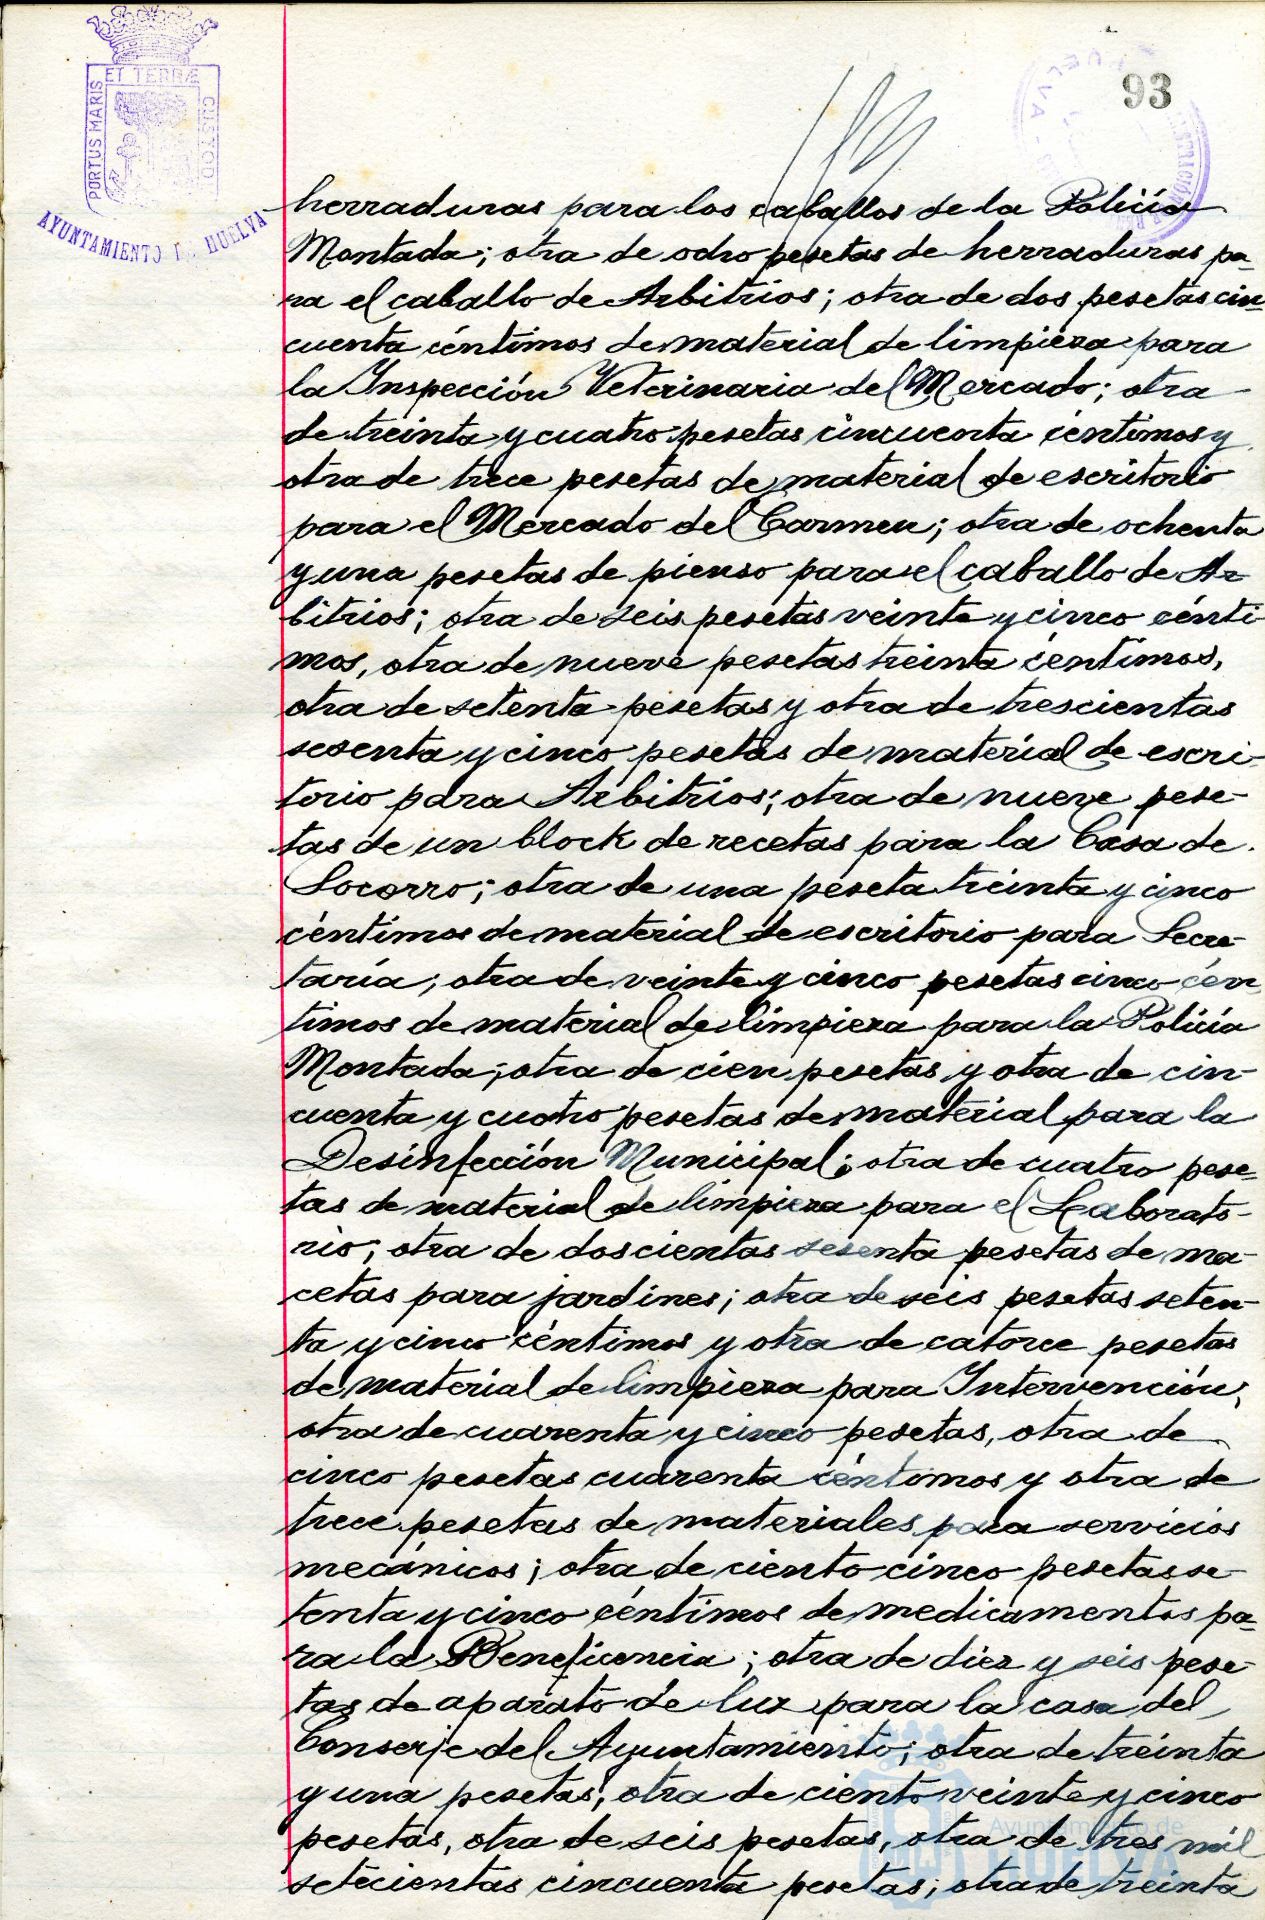 ET TERRÆ
PORTUS MARIS
CUSTODI
AYUNTAMIENTO DE HUELVA
93
herraduras para los caballos de la Policía
Montada; otra de ocho pesetas de herraduras pa-
ra el caballo de Arbitrios; otra de dos pesetas cin-
cuenta céntimos de material de limpieza para
la Inspección Veterinaria del Mercado; otra
de treinta y cuatro pesetas cincuenta céntimos y
otra de trece pesetas de material de escritorio
para el Mercado del Carmen; otra de ochenta
y una pesetas de pienso para el caballo de Ar-
bitrios; otra de seis pesetas veinte y cinco cénti-
mos, otra de nueve pesetas treinta céntimos,
otra de setenta pesetas y otra de trescientas
sesenta y cinco pesetas de material de escri-
torio para Arbitrios; otra de nueve pese-
tas de un block de recetas para la Casa de
Socorro; otra de una peseta treinta y cinco
céntimos de material de escritorio para Secre-
taría; otra de veinte y cinco pesetas cinco cén-
timos de material de limpieza para la Policía
Montada; otra de cien pesetas y otra de cin-
cuenta y cuatro pesetas de material para la
Desinfección Municipal; otra de cuatro pese-
tas de material de limpieza para el Laborato-
rio; otra de doscientas sesenta pesetas de ma-
cetas para jardines; otra de seis pesetas seten-
ta y cinco céntimos y otra de catorce pesetas
de material de limpieza para Intervención;
otra de cuarenta y cinco pesetas, otra de
cinco pesetas cuarenta céntimos y otra de
trece pesetas de materiales para servicios
mecánicos; otra de ciento cinco pesetas se-
tenta y cinco céntimos de medicamentos pa-
ra la Beneficencia; otra de diez y seis pese-
tas de aparato de luz para la casa del
Conserje del Ayuntamiento; otra de treinta
y una pesetas, otra de ciento veinte y cinco
pesetas, otra de seis pesetas, otra de tres mil
setecientas cincuenta pesetas; otra de treinta
Ayuntamiento de
HUELVA